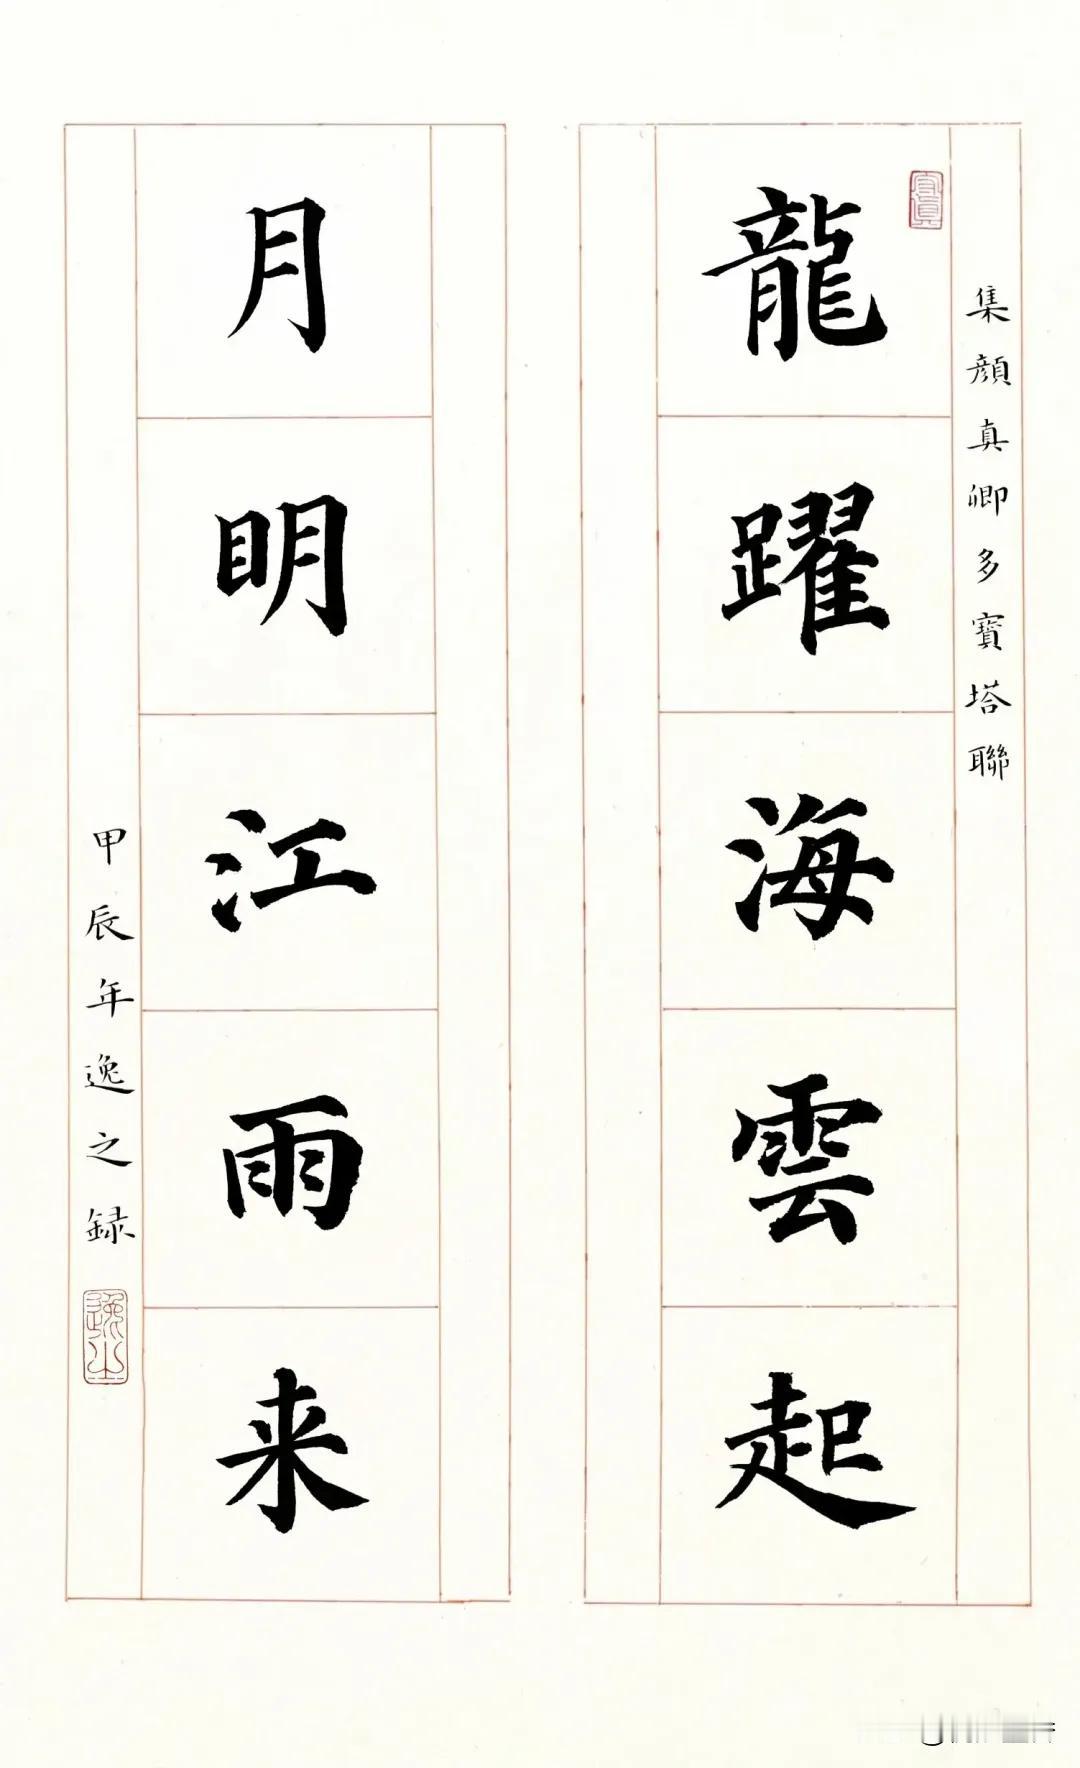 集顔真卿多寶塔聯
龍躍海雲起
月明江雨来
甲辰年逸之録
逸之